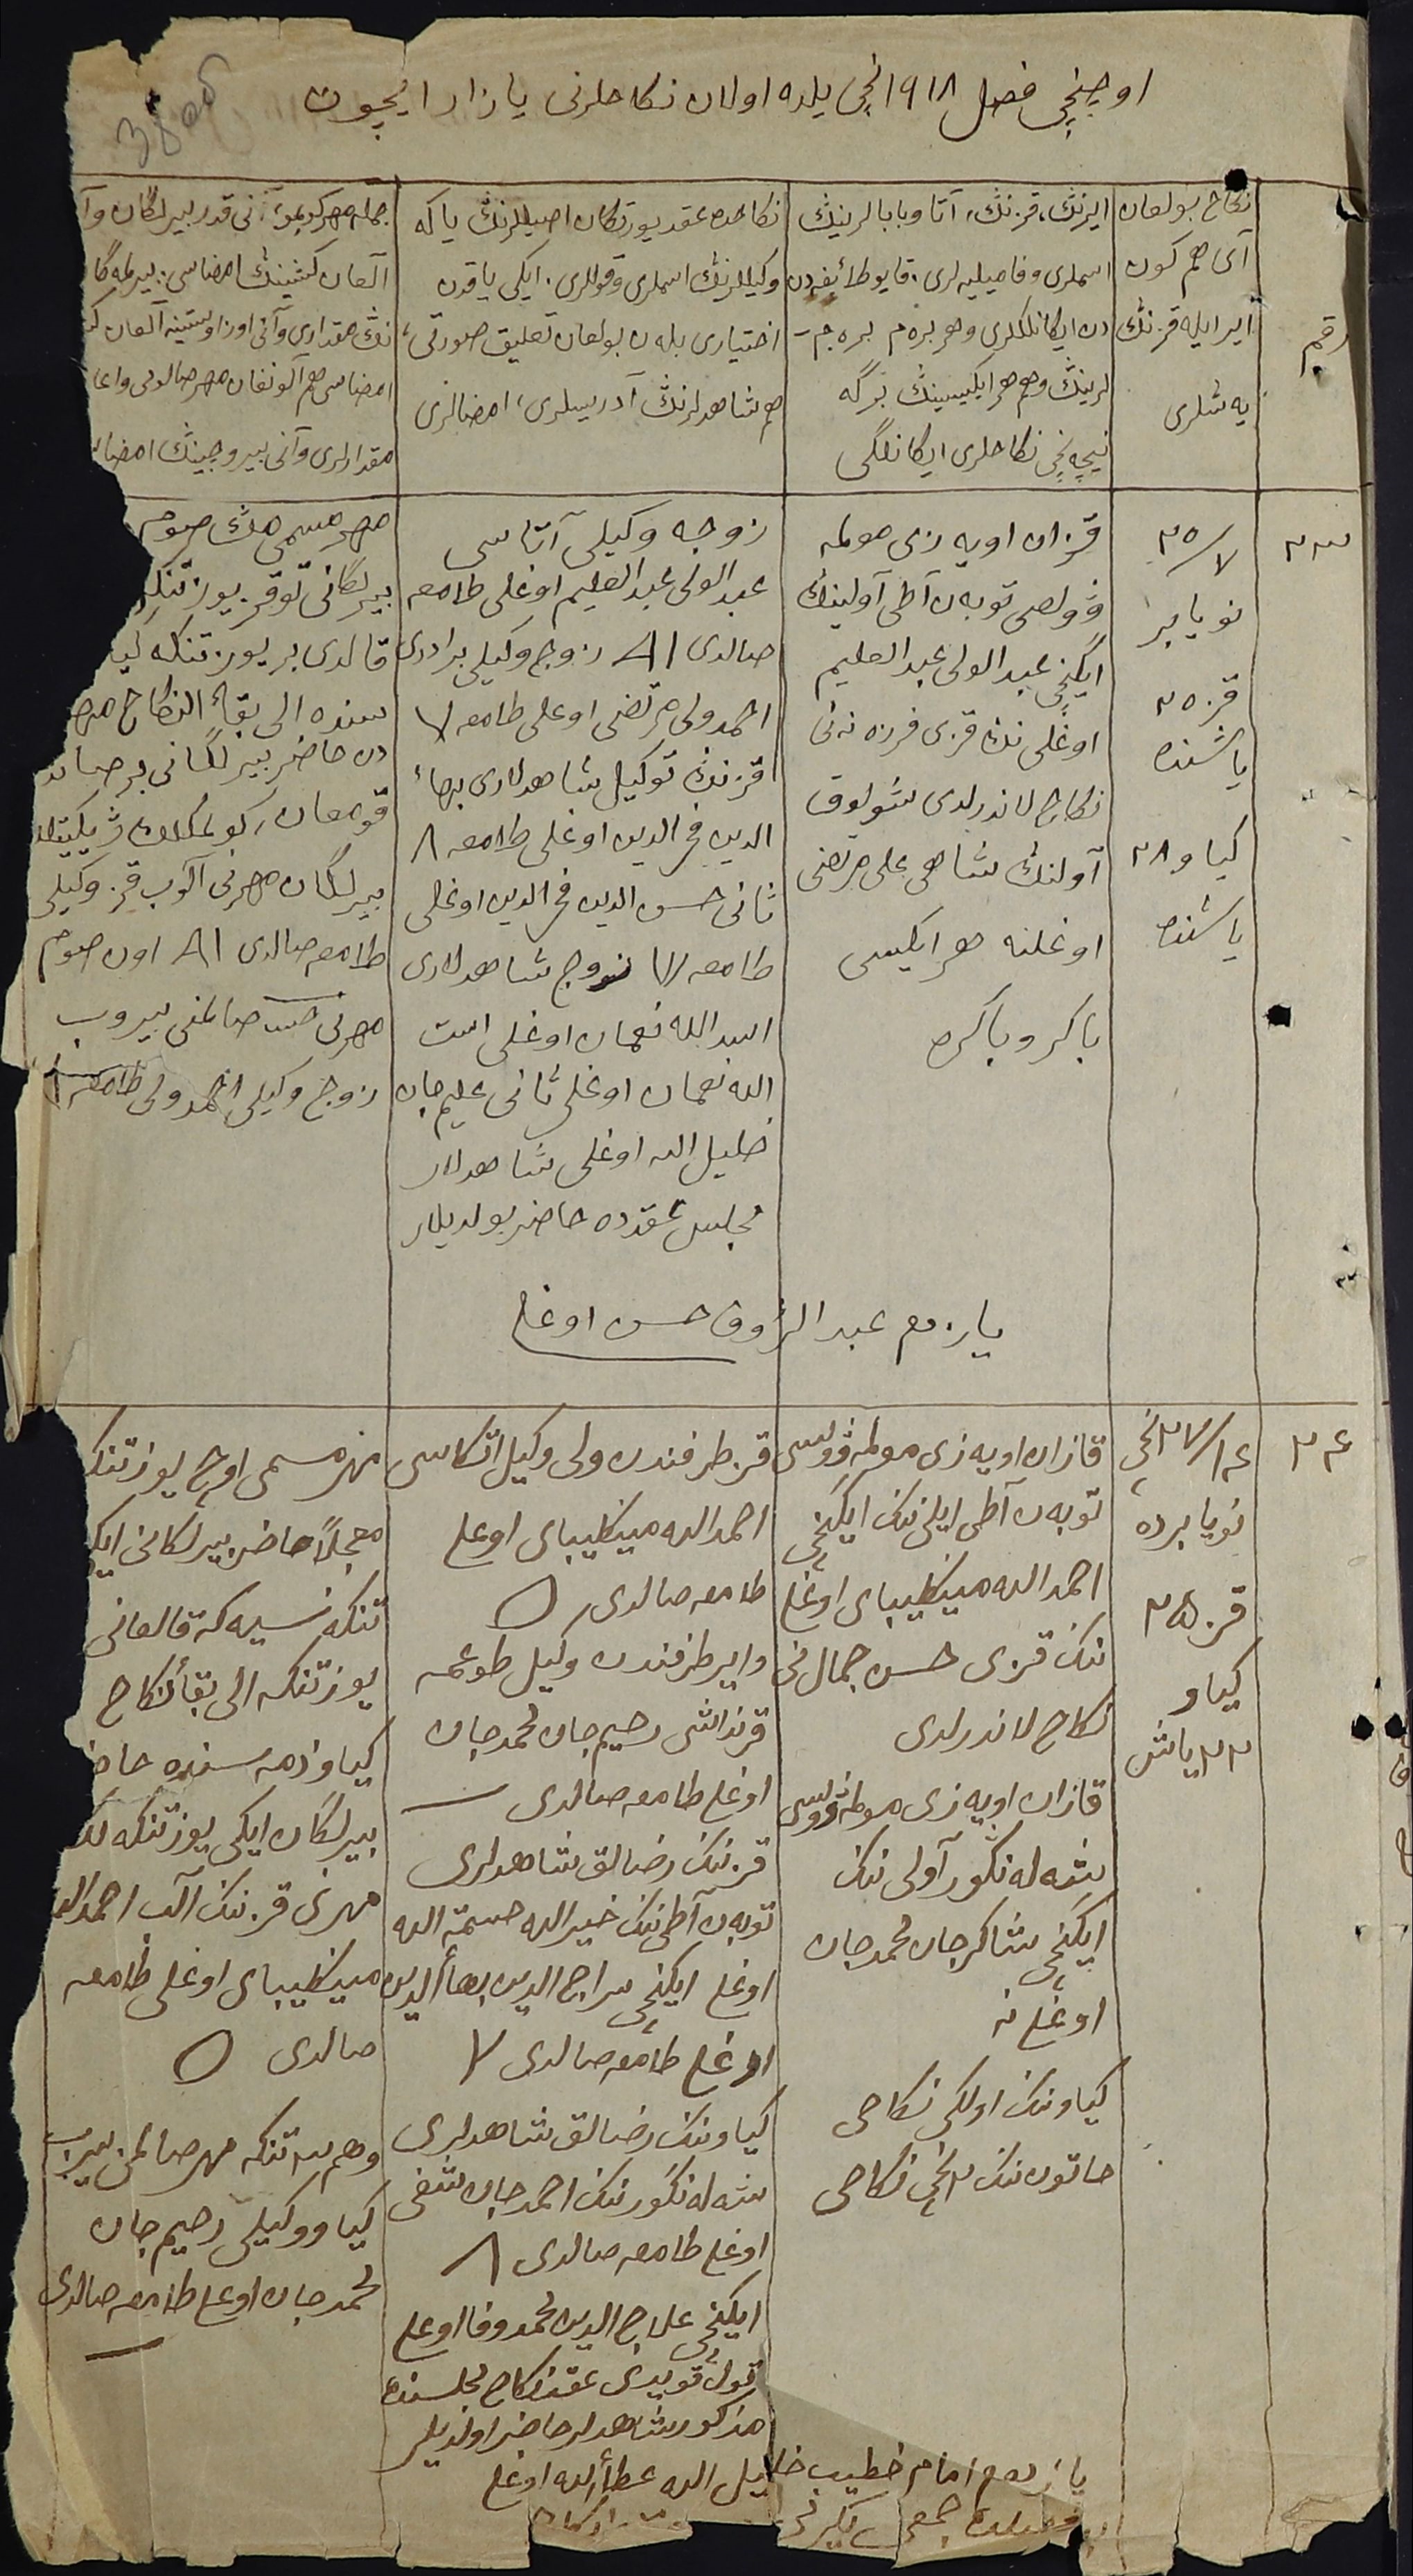 اوچنچی فصل ١٩١٨ نچی یلده اولان نکاحلرنی یازار ایچون
رقم
نکاح بولغان
آی هم کون
ایر ایله قزنڭ
یه شلری
ایرنڭ، قزنڭ، آتا و بابالرینڭ
اسملری و فامیلیه لری. قایو طائفه دن
دن ایکانلکلری و هر بره م بره م
لرینڭ و هم هر ایکیسینڭ برگه
نیچه نچی نکاحلری ایکانلگی
نکاحده عقد یورتکان اصیللرنڭ یا که
وکیللرینڭ اسملری و قوللری. ایکی یاقدن
اختیاری بله ن بولغان تعلیق صورتی،
هم شاهدلرنڭ آدریسلری، امضالری
جمله مهر کۏبمو، آنی قدر بیرلگان وآ
آلغان کشینڭ امضاسی. بیرلمه گا
نڭ مقداری وآنی اوز اوستینه آلغان ک
امضاسی هم آلونغان مهر صالوغی واعا
مقدارلری وآنی بیروچینڭ امضا
٢٣
٢٥/٧
نویابر
قز ٢٥
یاشنده
کیاو ٢٨
یاشنده
قزان اویه زی موڭه
وولصی توبه ن آطی آولینڭ
ایکنچی عبدالولی عبدالعلیم
اوغلی نڭ قزی فرزه نه نی
نکاح لاندرلدی شولوق
آولنڭ شاهی علی مرتضی
اوغلنه هر ایکیسی
باکر و باکره
زوجه وکیلی آتاسی
عبدالولی عبدالعلیم اوغلی طامغه
صالدی Al زوج وکیلی برادری
احمدولی مرتضی اوغلی طامغه ٧
قزنڭ توکیل شاهدلاری بهاء
الدین فخرالدین اوغلی طامغه ٨
ثانی حسن الدین فخرالدین اوغلی
طامغه زوج شاهدلاری
اسدالله نعمان اوغلی است
الله نعمان اوغلی ثانی علیم جان
خلیل الله اوغلی شاهدلار
مجلس عقدده حاضر بولدیلار
مهر مسمی مڭ صوم
بیرلگانی توقز یوز تنکه
قالدی بر یوز تنکه کیا
سنده الی بقاء النکاح مهر
دن حاضر بیرلگانی بر صاند
قویغان
بیرلگان مهرنی آلوب قز وکیلی
طامغه صالدی Al اون صوم
مهرنی صالغنی بیروب
زوج وکیلی احمدولی طامغه
یازدم عبدالرؤوف حسن اوغلی
٢٤
٢٧/١٤ نچی
نویابرده
قز ٢٥
کیاو
٢٢ یاش
قازان اویه زی موڭه وولسی
توبه ن آطی ایلی ننک ایکنچی
احمدالله مینکلیبای اوغلی
ننک قزی حسن جمال نی
نکاح لاندرلدی
قازان اویه زی موڭه وولسی
شه له نگور آولی ننک
ایکنچی شاکرجان محمدجان
اوغلی نه
کیاوننک اولکی نکاحی
خاتون ننک ٢ نچی نکاحی
قز طرفندن ولی وکیل اتکاسی
احمدالله مینکلیبای اوغلی
طامغه صالدی O
وایر طرفندن وکیل طوغمه
قرنداشی رحیم جان محمدجان
اوغلی طامغه صالدی —
قزننک رضالق شاهدلری
توبه ن آطی ننک خیرالله حسمة الله
اوغلی ایکنچی سراج الدین بهاءالدین
اوغلی طامغه صالدی ٧
کیاوننک رضالق شاهدلری
شه له نگورننک احمدجان شفی
اوغلی طامغه صالدی ٨
ایکنچی علاج الدین محمدوفا اوغلی
قول قویدی عقد نکاح مجلسنده
مذکور شاهدلر حاضر اولدیلر
مهر مسمی اوچ یوز تنکه
معجلاً حاضر بیرلکانی ایکی
تنکه نسیه که قالغانی
یوز تنکه الی بقاء نکاح
کیاو ذمه سنده حاضر
بیرلگان ایکی یوز تنکه لک
مهرنی قزننک آلب احمدالله
مینکلیبای اوغلی طامغه
صالدی O
وهم تنکه مهر صالغن بیرب
کیاو وکیلی رحیم جان
محمدجان اوغلی طامغه صالدی
—
یازدم امام خطیب خلیل الله عطاءالله اوغلی